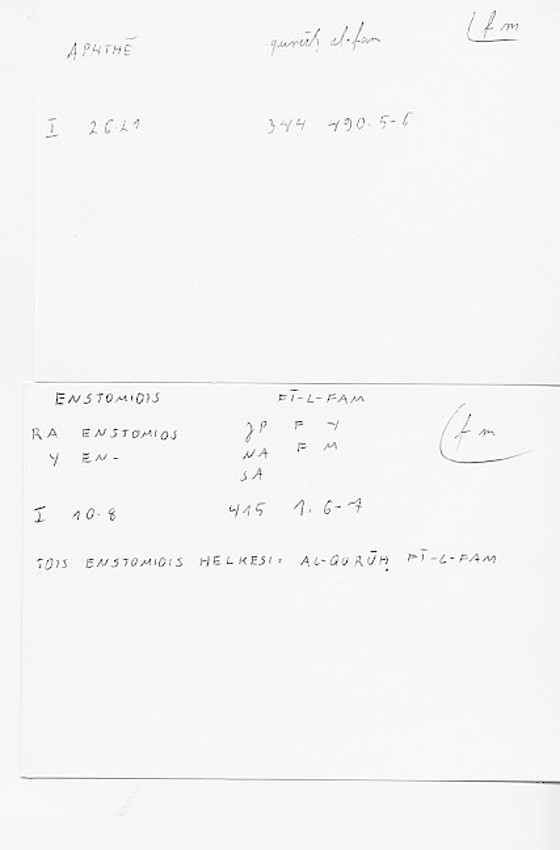 APHTHĒ qurūḥ al-fam (f m
I 26.21 344 490.5-6
ENSTOMIOIS FĪ-L-FAM
RA ENSTOMIOS JP F Y (f m
Y EN- NA F M
SA
I 10.8 415 1.6-7
TOIS ENSTOMIOIS HELKESI= AL-QURŪḤ FĪ-L-FAM